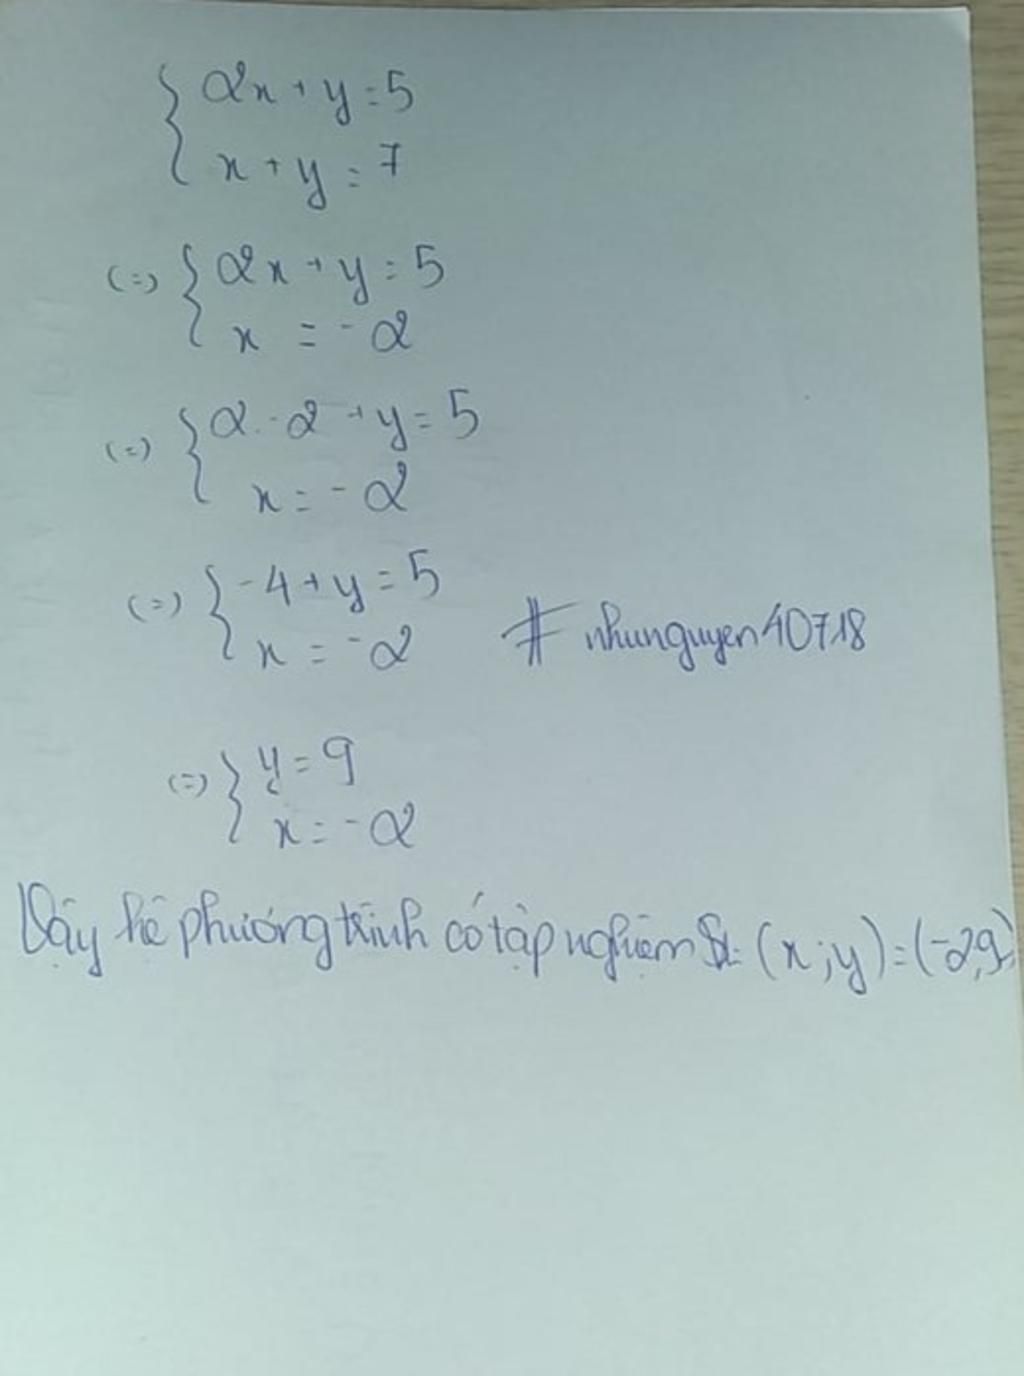 { 2x + y = 5
x + y = 7
(=) { 2x + y = 5
x = -2
(=) { 2. -2 + y = 5
x = -2
(=) { -4 + y = 5
x = -2
# nhunguyen40718
(=) { y = 9
x = -2
Vậy hệ phương trình có tập nghiệm là: (x ; y) = (-2;9)